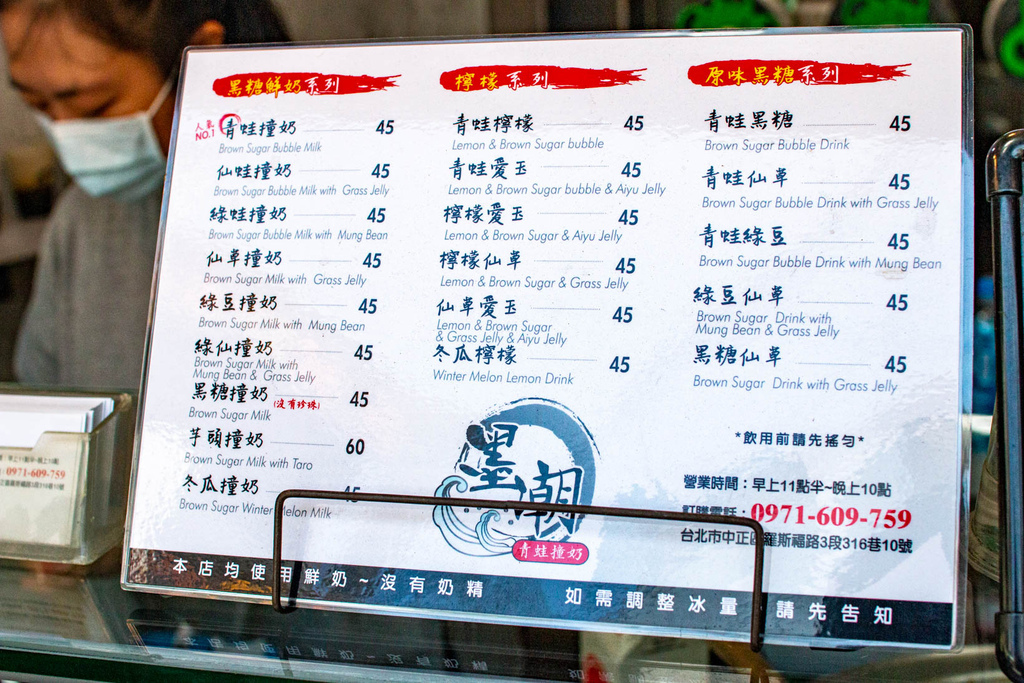 黑糖鮮奶系列
人氣 NO.1
青蛙撞奶 45
Brown Sugar Bubble Milk
仙蛙撞奶 45
Brown Sugar Bubble Milk with Grass Jelly
綠蛙撞奶 45
Brown Sugar Bubble Milk with Mung Bean
仙草撞奶 45
Brown Sugar Milk with Grass Jelly
綠豆撞奶 45
Brown Sugar Milk with Mung Bean
綠仙撞奶 45
Brown Sugar Milk with
Mung Bean & Grass Jelly
黑糖撞奶(沒有珍珠) 45
Brown Sugar Milk
芋頭撞奶 60
Brown Sugar Milk with Taro
冬瓜撞奶 45
Brown Sugar Winter Melon Milk
檸檬系列
青蛙檸檬 45
Lemon & Brown Sugar bubble
青蛙愛玉 45
Lemon & Brown Sugar bubble & Aiyu Jelly
檸檬愛玉 45
Lemon & Brown Sugar & Aiyu Jelly
檸檬仙草 45
Lemon & Brown Sugar & Grass Jelly
仙草愛玉 45
Lemon & Brown Sugar
& Grass Jelly & Aiyu Jelly
冬瓜檸檬 45
Winter Melon Lemon Drink
原味黑糖系列
青蛙黑糖 45
Brown Sugar Bubble Drink
青蛙仙草 45
Brown Sugar Bubble Drink with Grass Jelly
青蛙綠豆 45
Brown Sugar Bubble Drink with Mung Bean
綠豆仙草 45
Brown Sugar Drink with
Mung Bean & Grass Jelly
黑糖仙草 45
Brown Sugar Drink with Grass Jelly
墨潮
青蛙撞奶
*飲用前請先搖勻*
營業時間：早上11點半~晚上10點
訂購電話：0971-609-759
台北市中正區羅斯福路3段316巷10號
本店均使用鮮奶~沒有奶精 如需調整冰量 請先告知
早上11點半~晚上10點
0971-609-759
正區羅斯福路3段316巷10號